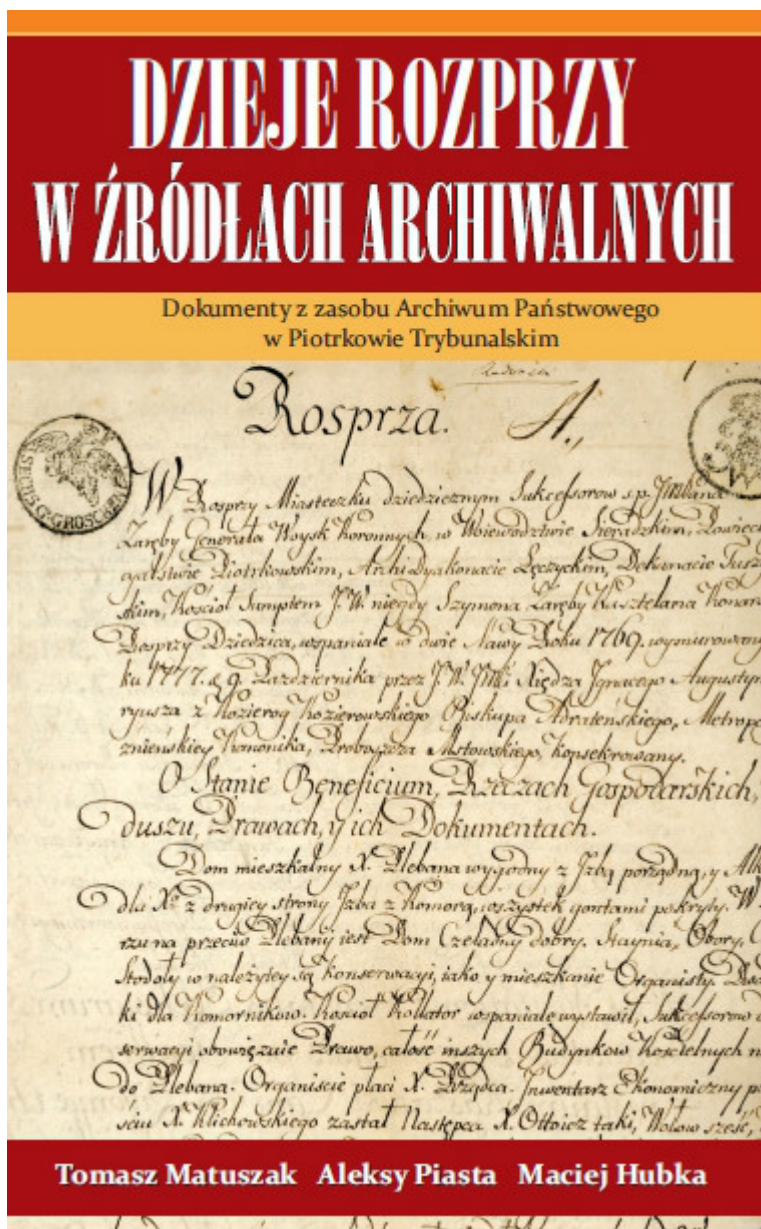 DZIEJE ROZPRZY
W ŹRÓDŁACH ARCHIWALNYCH
Dokumenty z zasobu Archiwum Państwowego
w Piotrkowie Trybunalskim
Rosprza.
W Rosprzy Miasteczku dziedzicznym Sukcessorow s.p. JmPana
Zaręby Generała Woysk Koronnych, w Woiewodztwie Sieradzkim, Powiecie
Piotrkowskim, ArchiDyakonacie Łęczyckim, Dekanacie Tusz
skim, Kościoł Sumptem J.W. niegdy Szymona Zaręby Kasztelana Konar
Rosprzy Dziedzica, wspaniale w dwie Nawy Roku 1769. wymurowany
ku 1777. d. 9. Pazdziernika przez J.W. Jmći Xiędza Jgnacego Augustyn
ryusza z Kozierog Kozierowskiego Biskupa Adrateńskiego, Metropo
znieńskiey Kanonika, Proboszcza Mstowskiego, konsekrowany.
O Stanie Beneficium, Rzeczach Gospodarskich,
duszu, Prawach, y ich Dokumentach.
Dom mieszkalny X. Plebana wygodny z Jzbą porządną, y Alk
dla Xa z drugiey strony Jzba z Komorą, wszystek gontami pokryty. W
rzu na przeciw Plebanij iest Dom Czeladny dobry. Staynia, Obory,
Stodoły w należytey są konserwacyi, iako y mieszkanie Organisty.
ki dla Komornikow. Kościoł Kollator wspaniale wystawił, Sukcessorow
serwacyi obowięzuie Prawo, całość inszych Budynkow Kościelnych n
do Plebana. Organiście płaci X. Rządca. Jnwentarz Ekonomiczny p
ściu X. Klichowskiego zastał Następca X. Ottoicz taki, Wołow sześć,
Tomasz Matuszak Aleksy Piasta Maciej Hubka